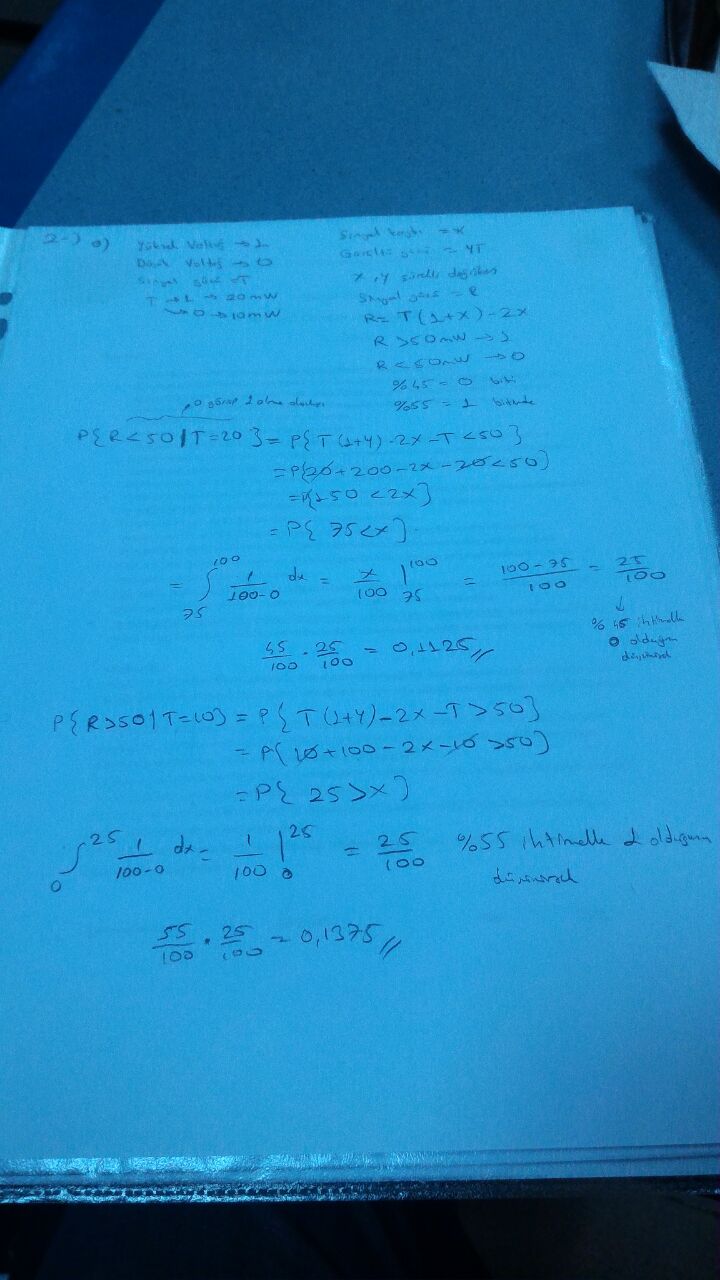 2-) a) Yüksek Voltaj → 1
Düşük Voltaj → 0
Sinyal gücü = T
T → 1 → 20mW
↘ 0 → 10mW
Sinyal kaybı = x
Gürültü gücü = YT
x, y sürekli değişken
Sinyal gücü = R
R = T(1+x)-2x
R > 50mW → 1
R < 50mW → 0
%45 = 0 biti
%55 = 1 bitinde
0 görüp 1 olma
P{R<50|T=20} = P{T(1+Y)-2x-T<50}
= P{20+200-2x-20<50}
= P{150<2x}
= P{75<x}
= ∫ 75 100 1/100-0 dx = x/100 | 75 100 = 100-75/100 = 25/100
↓
% 45 ihtimalle
0 olduğun
45/100 . 25/100 = 0,1125 //
P{R>50|T=10} = P{T(1+Y)-2x-T>50}
= P{10+100-2x-10>50}
= P{25>x}
∫ 0 25 1/100-0 dx = 1/100 | 0 25 = 25/100 %55 ihtimalle 1 olduğunu
55/100 . 25/100 = 0,1375 //